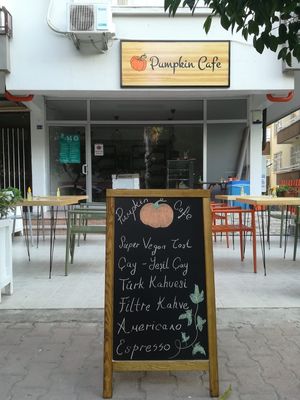 Pumpkin Cafe
Pumpkin Cafe
Super Vegan Tost
Çay - Yeşil Çay
Türk Kahvesi
Filtre Kahve
Americano
Espresso